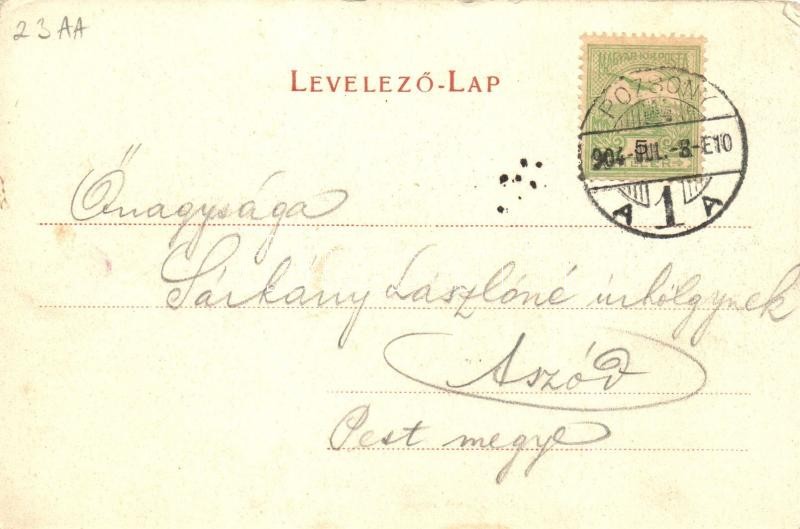 23AA
LEVELEZŐ-LAP
MAGYAR KIR. POSTA
5
FILLER
POZSONY
904 JUL. -8-E10
A 1 A
Őnagysága
Sárkány Lászlóné úrhölgynek
Aszód
Pest megye